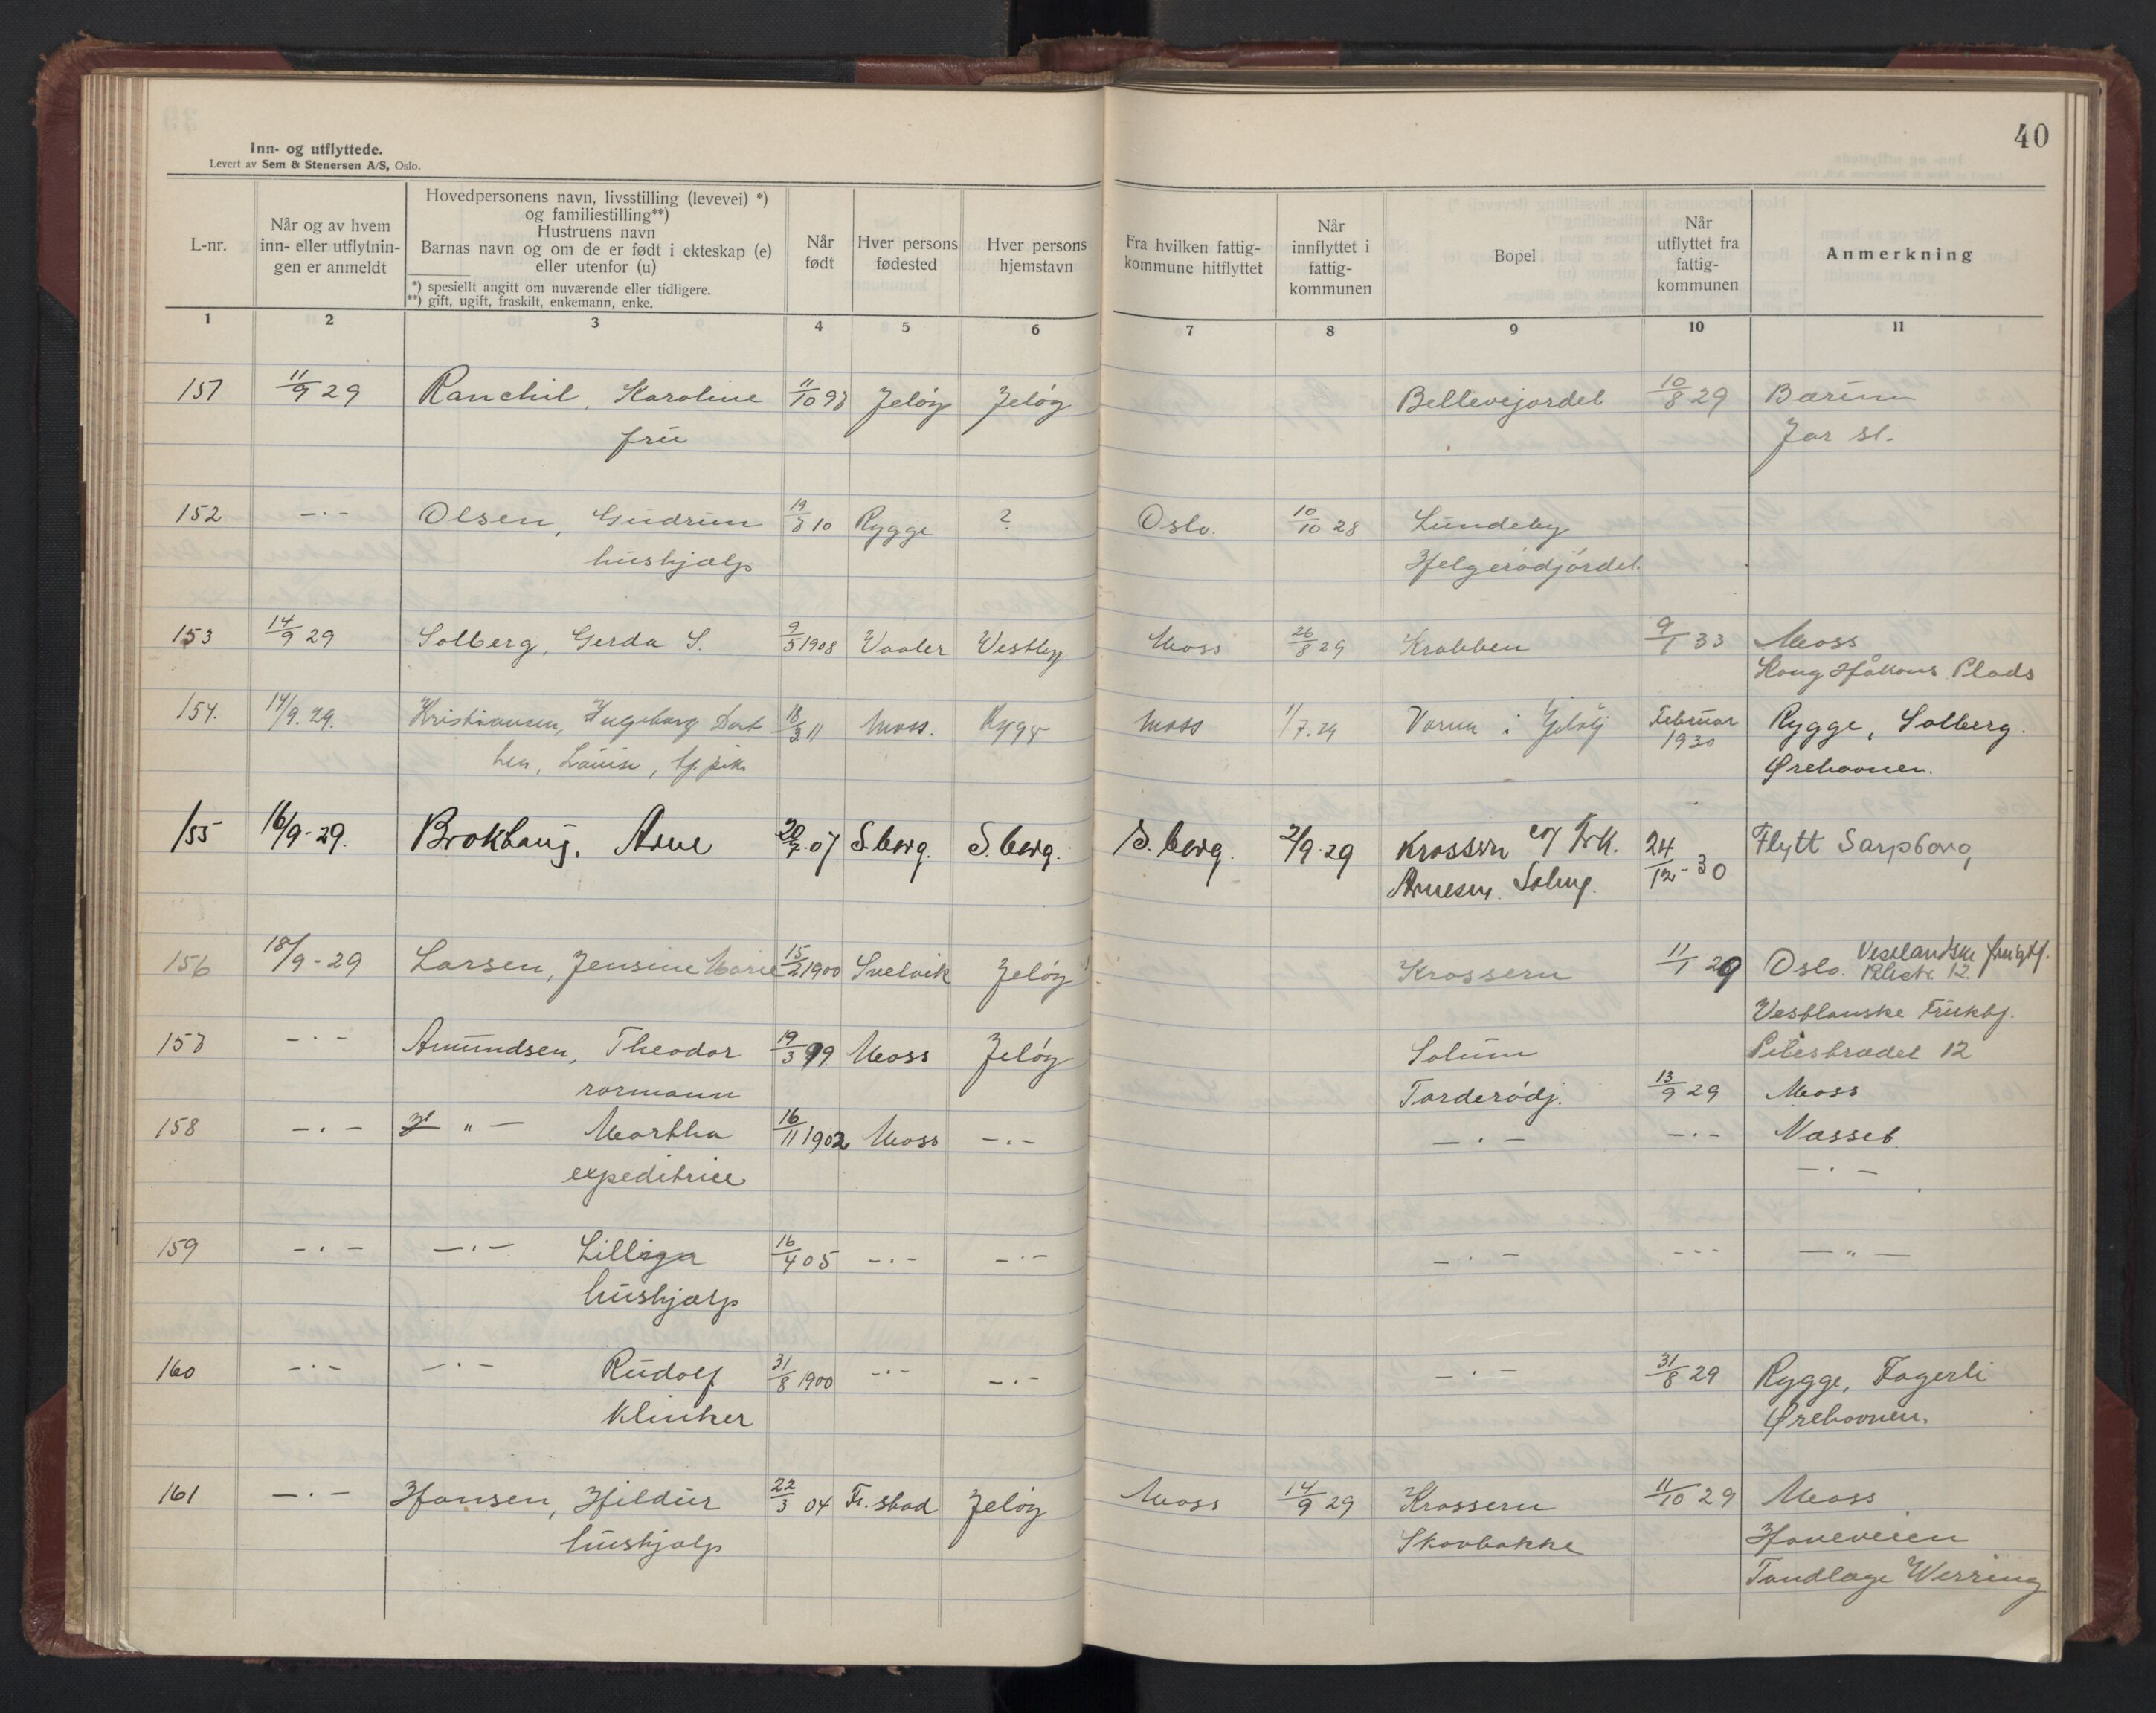 40
Inn- og utflyttede.
Levert av Sem & Stenersen A/S, Oslo.
L-nr.
Når og av hvem
inn- eller utflytnin-
gen er anmeldt
Hovedpersonens navn, livsstilling (levevei) *)
og familiestilling**)
Hustruens navn
Barnas navn og om de er født i ekteskap (e)
eller utenfor (u)
*) spesiellt angitt om nuværende eller tidligere.
**) gift, ugift, fraskilt, enkemann, enke.
Når
født
Hver persons
fødested
Hver persons
hjemstavn
Fra hvilken fattig-
kommune hitflyttet
Når
innflyttet i
fattig-
kommunen
Bopel
Når
utflyttet fra
fattig-
kommunen
Anmerkning
1 2 3 4 5 6 7 8 9 10 11
151 11/9 29 Ranchil, Karoline 11/10 98 Jeløy Jeløy Bellevejordet 10/8 29 Bærum
frü Jar st.
152 -·- Olsen, Gudrun 19/8 10 Rygge ? Oslo. 10/10 28 Lundeby
hushjælp Helgerødjordet.
153 14/9 29 Solberg, Gerda S. 9/5 1908 Vaaler Vestby Moss 26/8 29 Krabben 9/1 33 Moss
Kong Håkons Plads
154. 14/9. 29. Kristiansen, Ingeborg Dort 18/3 11 Moss. Rygge Moss 1/7. 29 Varna i Jeløy Februar 1930 Rygge, Solberg.
hea, Louise, Ørehavnen.
155 16/9-29. Brokhaug, Arne 20/7. 07 S.berg. S.berg. S.berg. 2/9. 29 Krossern 24/12-30 Flytt Sarpsborg
Arnesen. Solug.
156 18/9-29 Larsen, Jensine Marie 15/2 1900 Svelvik Jeløy Krossern 11/1 29 Oslo. Vestlandske frugtf.
12.
Vestlanske Fruktf.
157 -·- Amundsen, Theodor 19/3 99 Moss Jeløy Solum 12
rormann Tarderødj. 13/9 29 Moss
158 -·- " - Martha 16/11 1902 Moss -·- -·- -·- Næsset
expeditrice -·-
159 -·- -·- Lilliga 16/4 05 -·- -·- -·- --- -"-
hushjælp
160 -·- -·- Rudolf 31/8 1900 -·- -·- -·- 31/8 29 Rygge, Fagerli
klinker Ørehavnen.
161 -·- Hansen, Hildur 22/3 04 Fr.stad Jeløy Moss 14/9 29 Krossern 11/10 29 Moss
hushjælp Skovbakke Høveveien
Tandlæge Werring